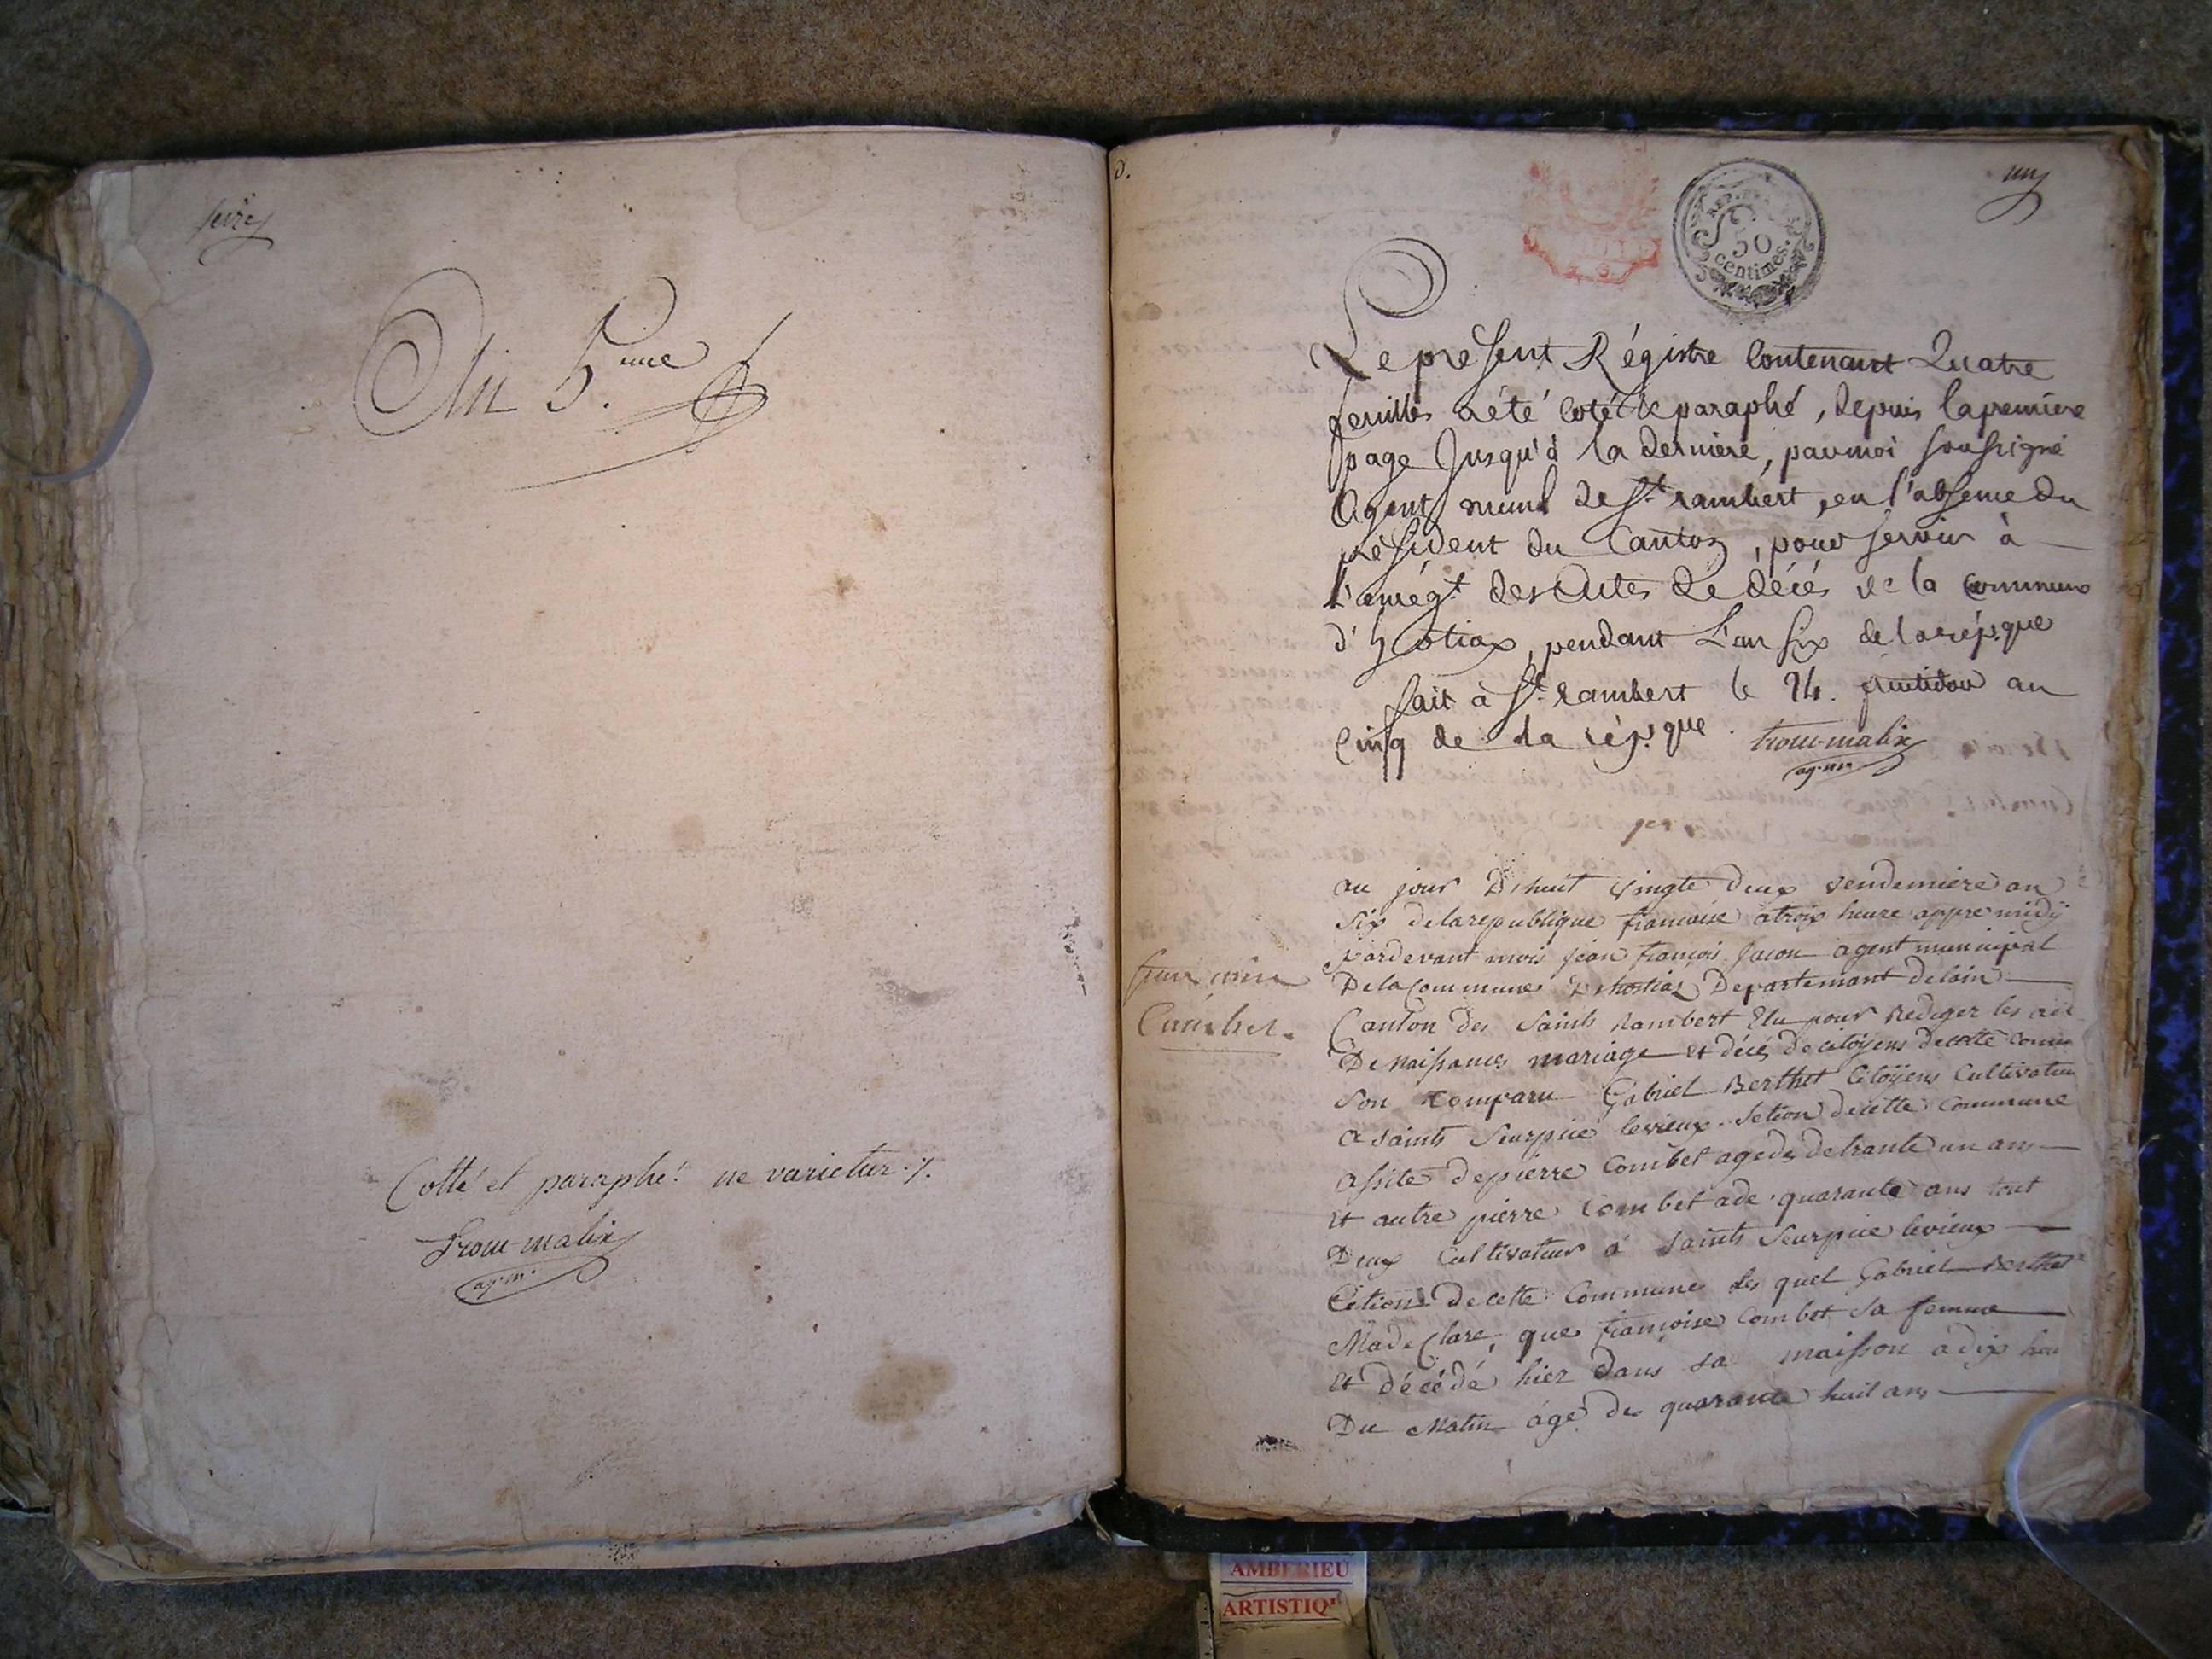 seize
An 5.eme
Cotté et paraphé ne varietur ./.
Trocu-malix
ag. m.
D.
un
REP.
50
centimes.
Le present Régistre Contenant Quatre
feuilles a été coté & paraphé, depuis la premiere
page Jusqu'à la derniere, par moi soussigné
Agent munal de St. rambert, en l'absence du
président du Canton, pour servir à
l'enrégt. des Actes de décés de la commune
d'hostiax, pendant L'an six de la rép.que
fait à St. rambert le 24. fructidor an
Cinq de la rép.que
ag. m.
1er
au jour Dhuit vingte deux vendemiere an
six de la republique francoise a trois heure appre midÿ
par devant mois jean francois Jacou agent municipal
De la Commune D hostiaz Departemant de lain
Canton des saints Rambert Elu pour Rediger les act
De Naissances mariage et décés de citoÿens de cette comm
son comparu Gabriel Berthet Citoÿens Cultivateur
a saints Seurpice levieux Setion de cette Commune
assité de pierre Combet agede de trante un ans
et autre pierre Combet ade quarante ans tout
Deux Cultivateur a saints Seurpice levieux
Cetions de cette Commune les quel Gabriel Berthet
Ma de Clare, que francoise Combet sa femme
et décédé hier dans sa maisson a dix heu
Du Matin agé de quarante huit ans
Combet.
AMBERIEU
ARTISTIQ